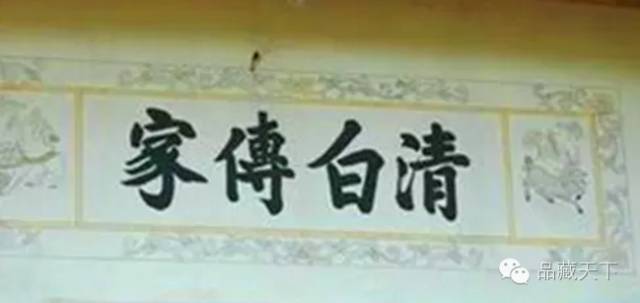 清白傳家
品藏天下